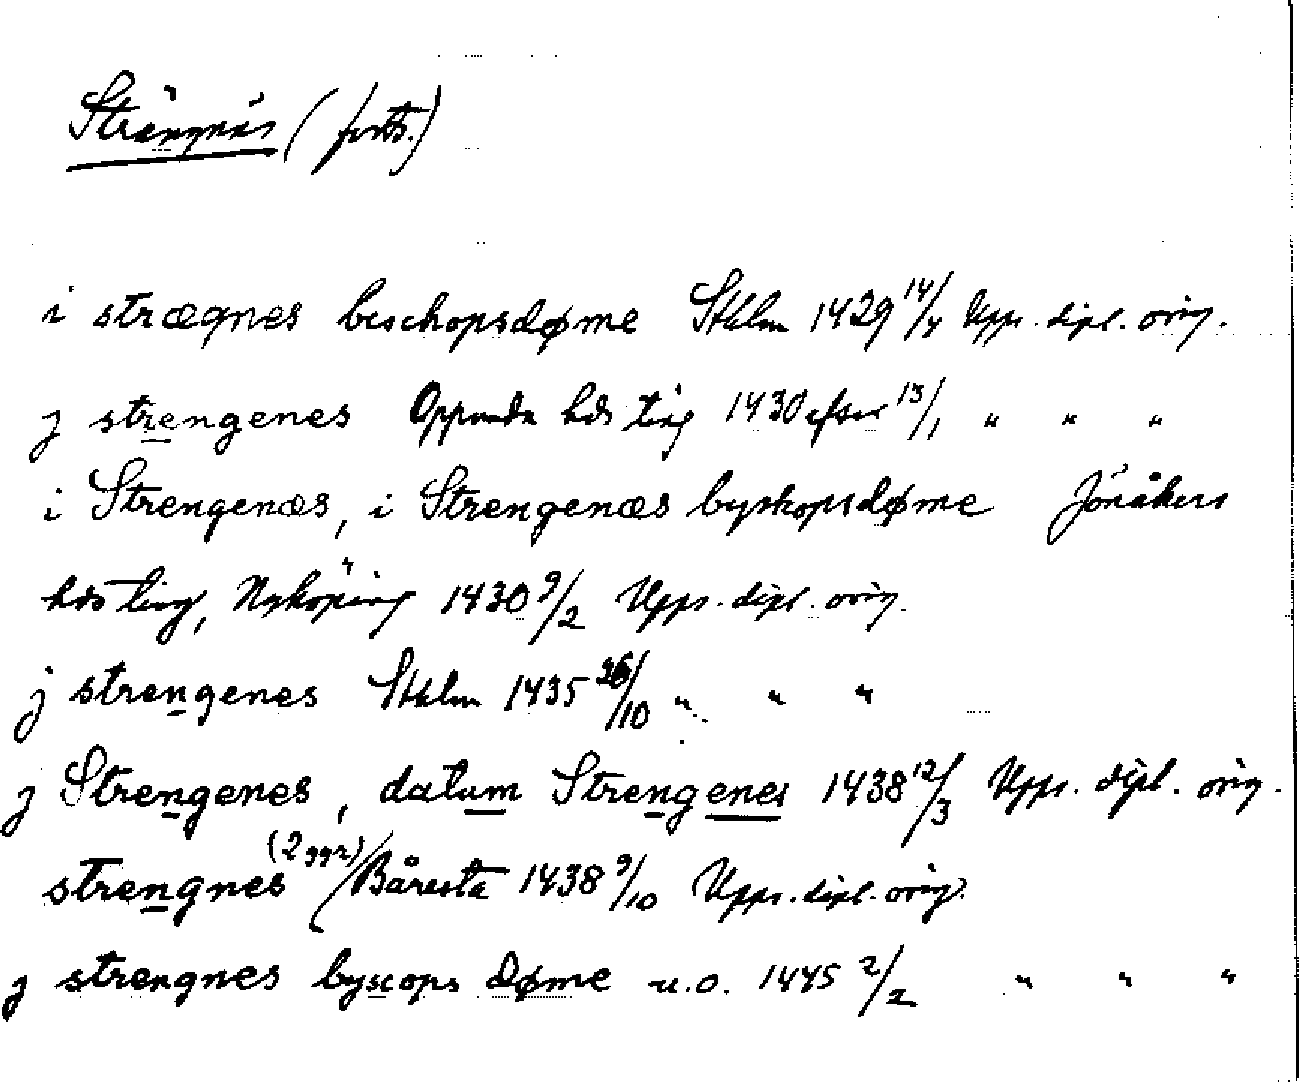 Strängnäs (forts.)
i strægnes bischopsdøme Sthlm 1429 14/4 Upps. dipl. orig.
j strengenes Oppunda hds ting 1430 efter 13/1 " " "
i Strengenæs, i Strengenæs byskopsdøme Jönåkers
hds ting, Nyköping 1430 9/2 Upps. dipl. orig.
j strengenes Sthlm 1435 26/10 " " "
j Strengenes, datum Strengenes 1438 12/3 Upps. dipl. orig.
strengnes (2 ggr) / Båresta 1438 9/10 Upps. dipl. orig.
j strengnes byscops døme u.o. 1445 2/2 " " "